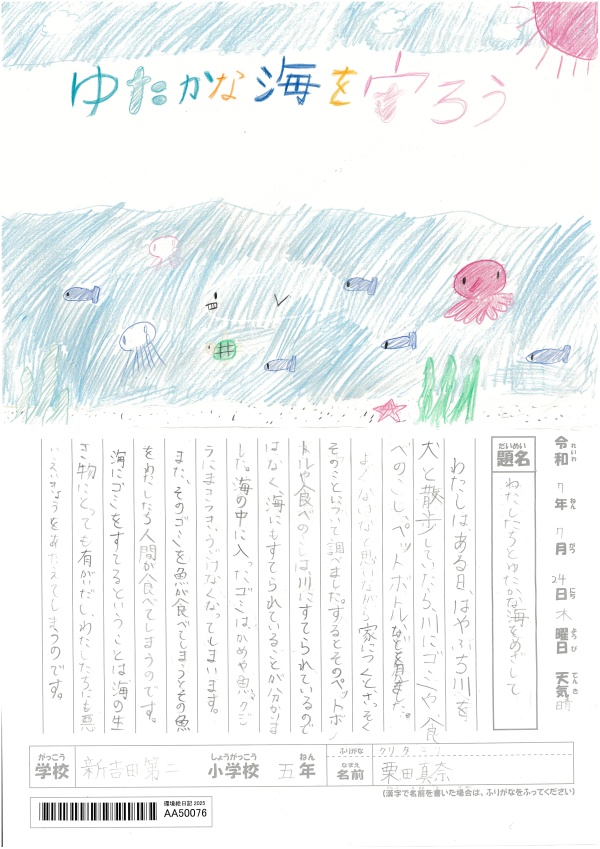 ゆたかな海を守ろう
令和7年7月24日木曜日 天気 晴
れいわ ねん がつ にち ようび てんき
だいめい
題名
わたしたちとゆたかな海をめざして
わたしは、ある日、はやぶち川を、
犬と散歩していたら、川にゴミや、食
べのこし、ペットボトルなどを見ました。
よくないなと思いながら家につくとさっそく
そのことについて調べました。するとそのペットボ
トルや食べのこしは、川にすてられているので
はなく、海にもすてられていることが分かりま
した。海の中に入ったゴミは、かめや魚、クジ
らにまきつき、うごけなくなってしまいます。
また、そのゴミを魚が食べてしまうとその魚
をわたしたち人間が食べてしまうのです。
海にゴミをすてるということは海の生
き物にとっても有がいだし、わたしたちにも悪
いえいきょうをあたえてしまうのです。
がっこう しょうがっこう ねん
学校 新吉田第二 小学校 五年
ふりがな クリタ
なまえ
名前 栗田真奈
(漢字で名前を書いた場合は、ふりがなをふってください)
環境絵日記 2025
AA50076